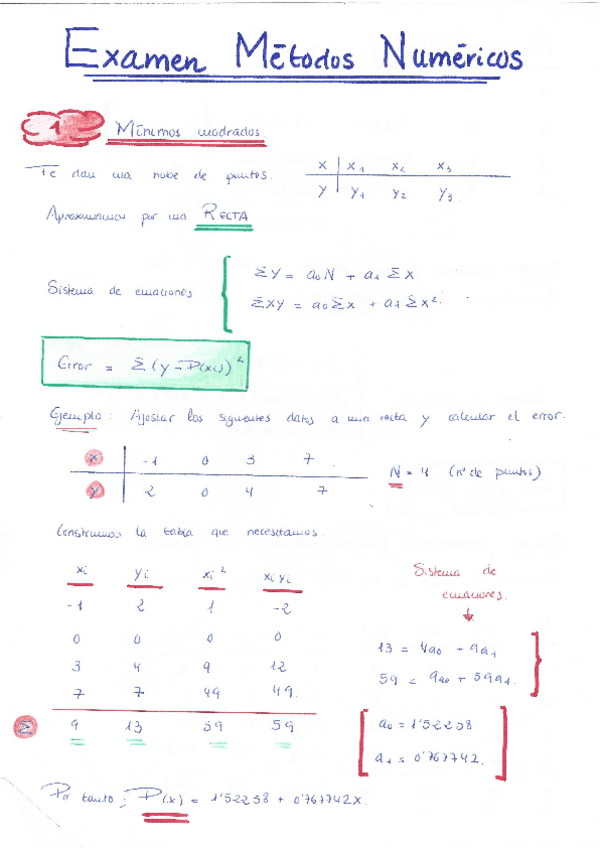 Examen Métodos Numéricos
1 Mínimos cuadrados
Te dan una nube de puntos.
x | x₁ x₂ x₃
y | y₁ y₂ y₃
Aproximamos por una RECTA
Sistema de ecuaciones
Σy = a₀N + a₁Σx
Σxy = a₀Σx + a₁Σx².
Error = Σ(y - P(xi))²
Ejemplo: Ajustar los siguientes datos a una recta y calcular el error.
x | -1 0 3 7
y | 2 0 4 7
N = 4 (nº de puntos)
Construimos la tabla que necesitamos.
xi yi xi² xi yi
-1 2 1 -2
0 0 0 0
3 4 9 12
7 7 49 49.
Σ 9 13 59 59
Sistema de
ecuaciones.
↓
13 = 4a₀ + 9a₁
59 = 9a₀ + 59a₁.
a₀ = 1'52258
a₁ = 0'767742.
Por tanto: P(x) = 1'52258 + 0'767742x.